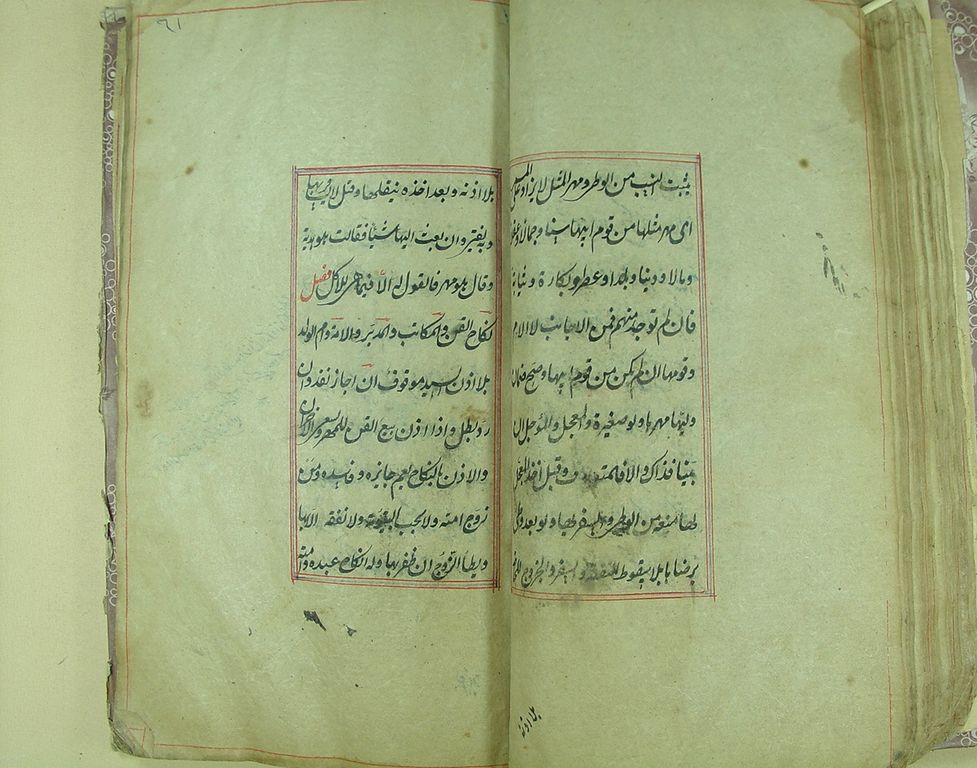 يثبت النسب من الوطى ومهر المثل لا يزاد على المسمى
اى مهر مثلها من قوم ابيها سنا وجمالا
ومالا ودينا وبلدا وعصرا وبكارة وثيابة
فان لم توجد منهم فمن الاجانب لا الام
وقومها ان لم تكن من قوم ابيها وصح ضمان
وليها مهرها ولو صغيرة والمعجل والمؤجل ان
بينا فذاك والا فالمتعارف وقبل اخذ المعجل
لها منعه من الوطى والسفر بها ولو بعد وطى
برضاها بلا سقوط النفقة والسفر والخروج للحاجة
بلا اذنه
٦١
بلا اذنه وبعد اخذه ينقلها وقيل لا
وبه يفتى وان بعث اليها شيئا فقالت هو هدية
وقال هو مهر فالقول له الا فيما هيئ للاكل فصل
نكاح القن والمكاتب والمدبر والامة وام الولد
بلا اذن السيد موقوف ان اجاز نفذ وان
رد بطل واذا اذن بيع القن للمهر وسعى الاخران
والاذن بالنكاح يعم جايزه وفاسده ومن
زوج امته ولا يجب التبوئة ولا نفقة الا بها
ويطا الزوج ان ظفر بها وله انكاح عبده وامته